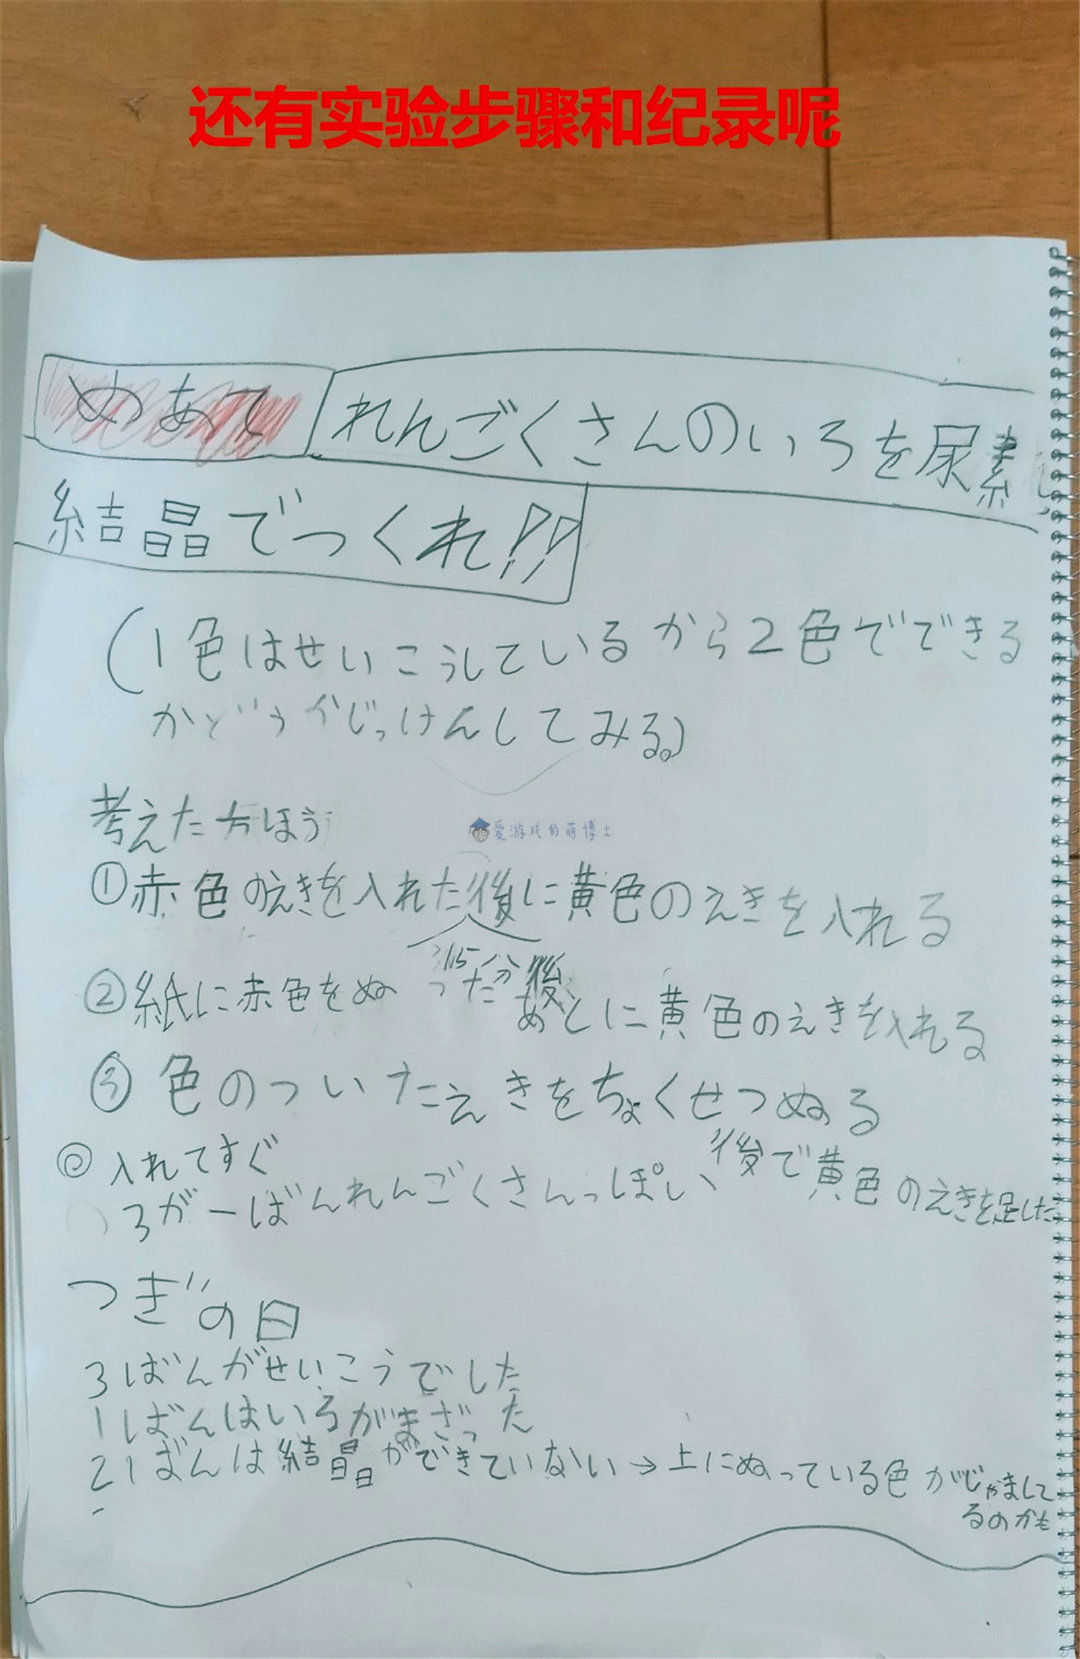 还有实验步骤和纪录呢
めあて れんごくさんのいろを尿素
結晶でつくれ!!
(1色はせいこうしているから2色でできる
かどうかじっけんしてみる。)
考えた方ほう
爱游戏的萌博士
①赤色のえきを入れた後に黄色のえきを入れる
15分後
②紙に赤色をぬった あとに黄色のえきを入れる
③色のついたえきをちょくせつぬる
◎入れてすぐ
3が一ばんれんごくさんっぽい 後で黄色のえきを足した
つぎの日
3ばんがせいこうでした
1ばんはいろがまざった
2ばんは結晶ができていない→上にぬっている色がじゃまして
るのかも